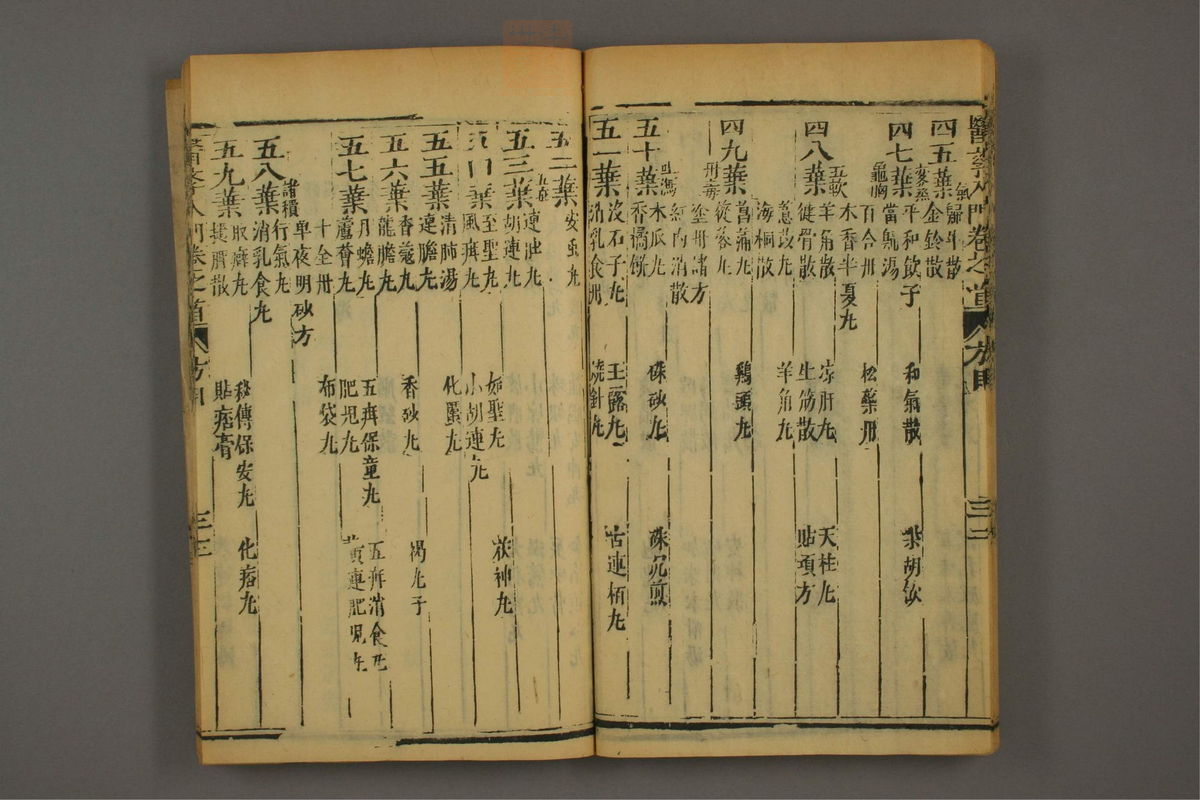 四五葉 金鈴散
四七葉 平和飲子 和氣散 柴胡飲
龜胸 當歸湯
百合丹 松藥丹
木香半夏丸
四八葉 五軟 羊角散 涼肝丸 天柱丸
健骨散 生筋散 貼項方
羊角丸
海桐散
四九葉 菖蒲丸 鷄頭丸
丹毒 塗丹諸方
紅內消散
五十葉 吐瀉 木瓜丸 硃砂丸 硃沉煎
香橘餅
五一葉 沒石子丸 玉露丸 古連栢丸
消乳食丹 燒針丸
五二葉 安蟲丸
五三葉 連胆丸
胡連丸
五四葉 至聖丸 如聖丸 茯神丸
風疳丸 小胡連丸
五五葉 清肺湯 化䘌丸
連膽丸
五六葉 香蔻丸 香砂丸 褐丸子
龍膽丸
五七葉 丹蟾丸 五疳保童丸 五疳消食丸
蘆薈丸 肥兒丸 黃連肥兒丸
十全丹 布袋丸
單夜明砂方
五八葉 諸積 行氣丸
消乳食丸
五九葉 取癖丸 秘傳保安丸 化痞丸
貼痞膏
醫學入門卷之首 方目 三三